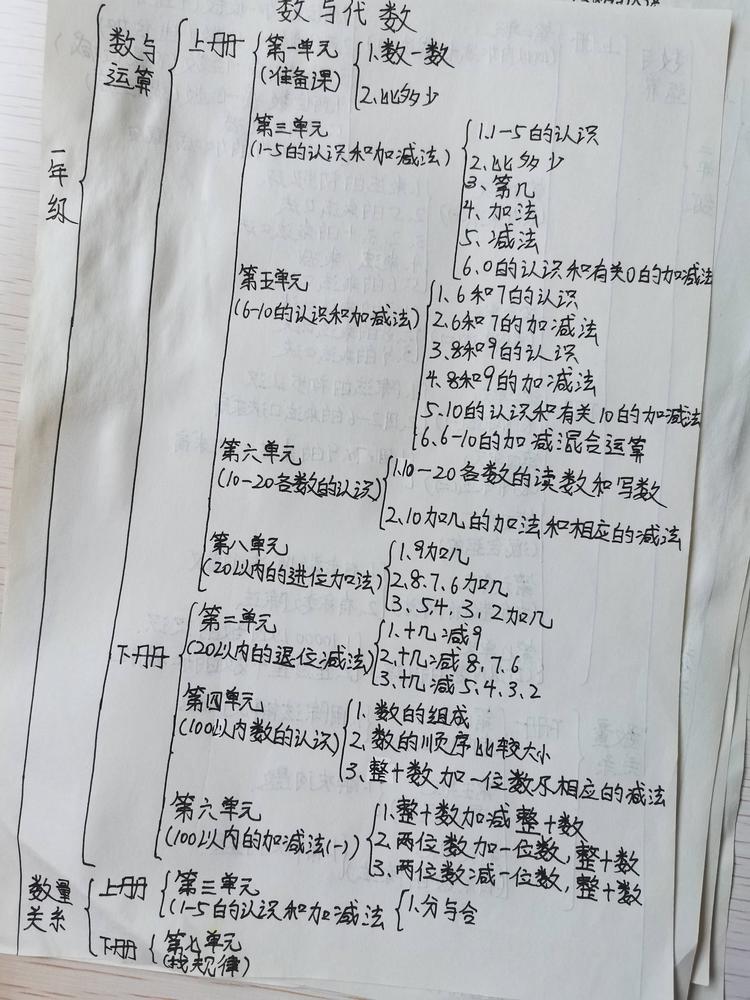 数与代数
一年级
数与
运算
上册
第一单元
(准备课)
1.数一数
2.比多少
第三单元
(1-5的认识和加减法)
1.1-5的认识
2.比多少
3、第几
4、加法
5、减法
6.0的认识和有关0的加减法
第五单元
(6-10的认识和加减法)
1.6和7的认识
2.6和7的加减法
3.8和9的认识
4.8和9的加减法
5.10的认识和有关10的加减法
6.6-10的加减混合运算
第六单元
(10-20各数的认识)
1.10-20各数的读数和写数
2.10加几的加法和相应的减法
第八单元
(20以内的进位加法)
1.9加几
2.8.7.6加几
3、5.4、3、2加几
下册
第二单元
(20以内的退位减法)
1.十几减9
2.十几减8、7、6
3.十几减5、4、3、2
第四单元
(100以内数的认识)
1、数的组成
2、数的顺序比较大小
3、整十数加一位数及相应的减法
第六单元
(100以内的加减法(一)
1.整十数加减整十数
2.两位数加一位数,整十数
3、两位数减一位数,整十数
数量
关系
上册
第三单元
(1-5的认识和加减法
1.分与合
下册
第七单元
(找规律)